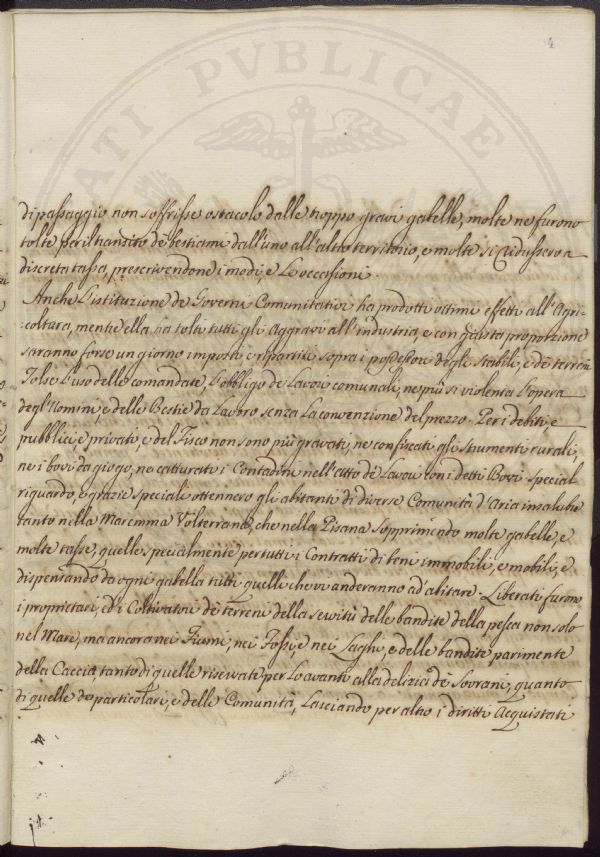 4
ATI PVBLICAE
di passaggio non soffrisse ostacolo dalle troppo gravi gabelle, molte ne furono
tolte per il transito de bestiami dall'uno all'altro territorio, e molte si ridussero a
discreta tassa, prescrivendone i modi, e le occessioni.
Anche l'istituzione de Governi Comunitativi ha prodotti ottimi effetti all'Agri-
-coltura, mentre ella ha tolti tutti gli Aggravi all'industria, e con giusta proporzione
saranno forse un giorno imposti, e ripartiti sopra i possessori degli stabili, e de terreni
Tolse l'uso delle comandate, l'obbligo de Lavori comunali, ne più si violenta l'opera
degl'Uomini, e delle Bestie da Lavoro senza la convenzione del prezzo. Per i debiti, e
pubblici, e privati, e del Fisco non sono più gravati, ne confiscati gli strumenti rurali,
ne i bovi da giogo, ne catturati i Contadini nell'atto de Lavori con i detti Bovi. Special
riguardo, e grazie speciali ottennero gli abitanti di diverse Comunità d'Aria insalubre
tanto nella Maremma Volterrana, che nella Pisana sopprimendo molte gabelle, e
molte tasse, quelle specialmente per tutti i Contratti di beni immobili, e mobili, e
dispensando da ogni gabella tutti quelli che vi anderanno ad'abitare. Liberati furono
i proprietari, ed i Coltivatori de terreni della servitù delle bandite della pesca non solo
nel Mare, ma ancora nei Fiumi, nei Fossi, e nei Laghi, e delle bandite parimente
della Caccia, tanto di quelle riservate per lo avanti alla delizia de Sovrani, quanto
di quelle de particolari, e delle Comunità, lasciando per altro i diritti Acquistati